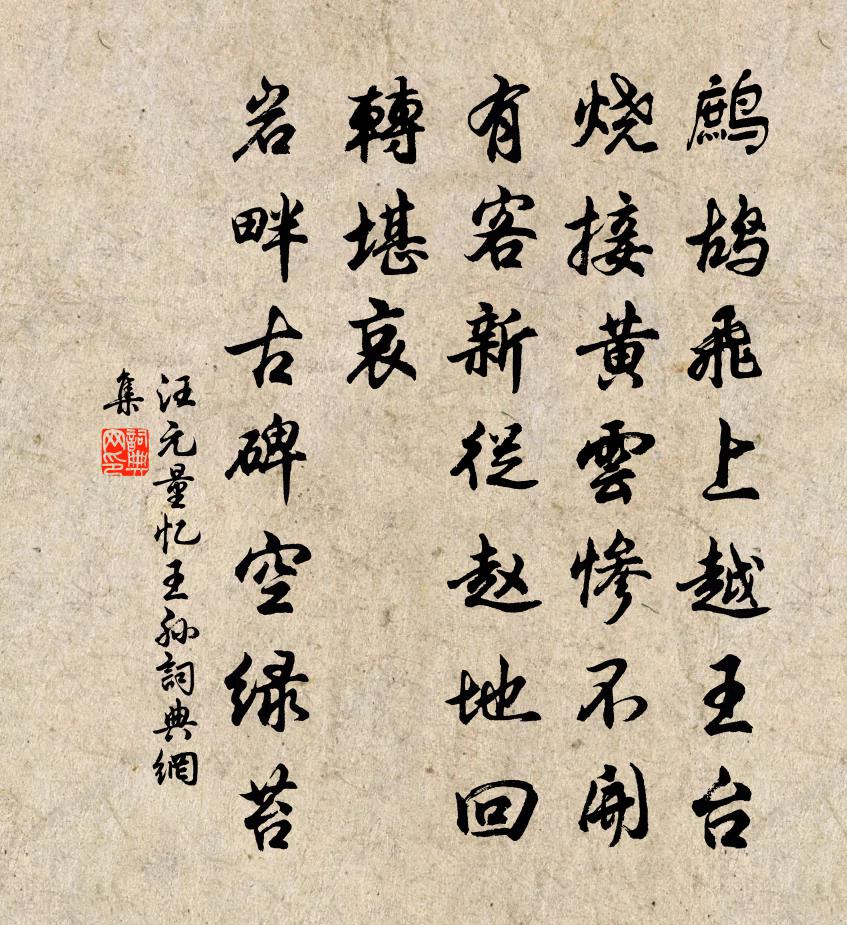 鹧鸪飛上越王台
烧接黄雲惨不開
有客新從赵地回
轉堪哀
岩畔古碑空绿苔
汪元量忆王孙詞典網
集
詞典
网印